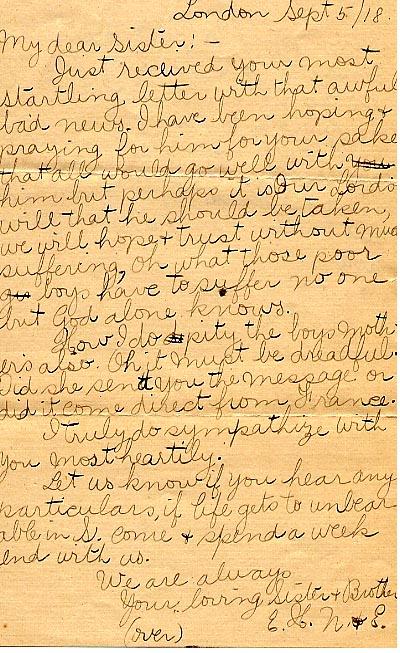 London Sept 5/18.
My dear Sister:-
Just received your most
startling letter with that awful
bad news. I have been hoping &
praying for him for your sake
that all would go well with you
him but perhaps it is Our Lord's
will that he should be taken,
we will hope & trust without much
suffering, Oh what those poor
boys have to suffer no one
but God alone knows.
How I do pity the boys moth
ers also. Oh it must be dreadful.
Did she send you the message or
did it come direct from France.
I truly do sympathize with
you most heartily.
Let us know if you hear any
particulars, if life gets to unbear
able in S. come & spend a week
end with us.
We are always
Your loving Sister & Brother
E. H. N & E.
(over)